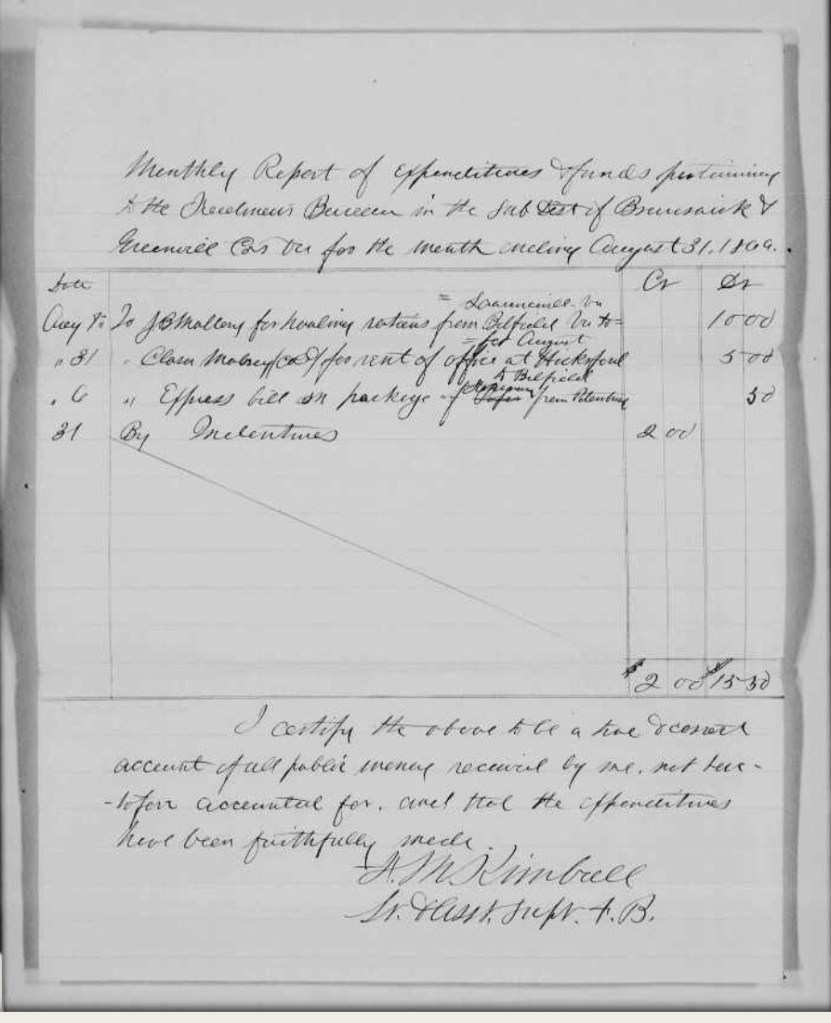 Monthly Report of Expenditures & funds pertaining
to the Freedmens Bureau in the Sub Dist of Brunswick &
Greenvill Cos Va for the month ending August 31. 186
Date Cr Dr
= Va
Aug To J B Mallory for hauling rations from Bilfield Va to = 10 00
= for August
" 31 " Mabrey for rent of office at Hicksford 5 00
to Bilfield
" 6 " Express bill on package of from Petersburg 50
31 By Indentures 2 00
$ 2 00 $ 15 50
I certify the above to be a true & correct
account of all public money received by me, not here-
-tofore accounted for. and that the expenditures
have been faithfully made.
M Kimball
Lt. & Asst. Supt. F. B.